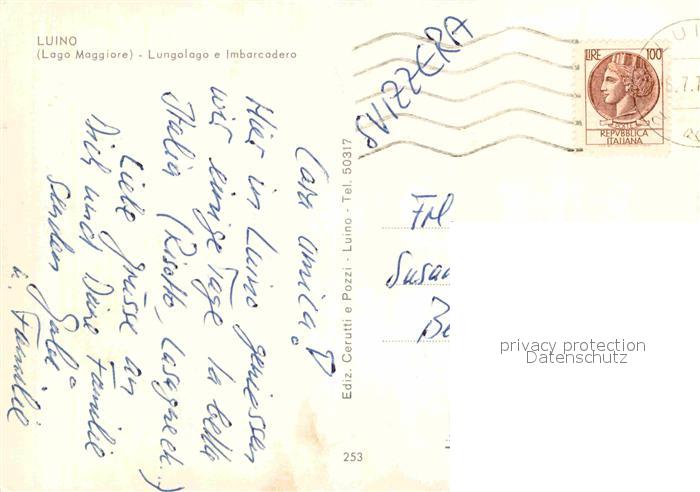 LUINO
(Lago Maggiore) - Lungolago e Imbarcadero
Cara amica!
Hier in Luino geniessen
wir einige Tage la bella
Italia (Risotto, Lasagne etc..)
Liebe Grüsse an
Dich und Deine Familie
senden
u. Familie
Ediz. Cerutti e Pozzi - Luino - Tel. 50317
253
SVIZZERA
LIRE 100
REPVBBLICA
ITALIANA
Frl
Susan
Be
privacy protection
Datenschutz